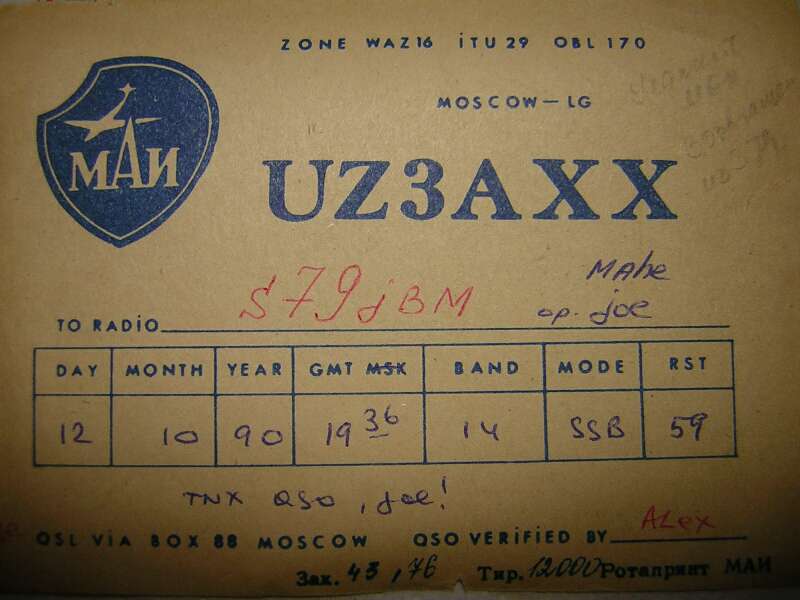 ZONE WAZ16 iTU29 OBL170
MOSCOW—LG
МАИ
UZ3AXX
MAhe
TO RADiO S79jBM op. joe
DAY MONTH YEAR GMT MSK BAND MODE RST
12 10 90 19 36 14 SSB 59
TNX QSO, joe!
QSL ViA BOX 88 MOSCOW QSO VERiFiED BY ALex
Зак. 43, 76 Тир. 12000 Ротапринт МАИ